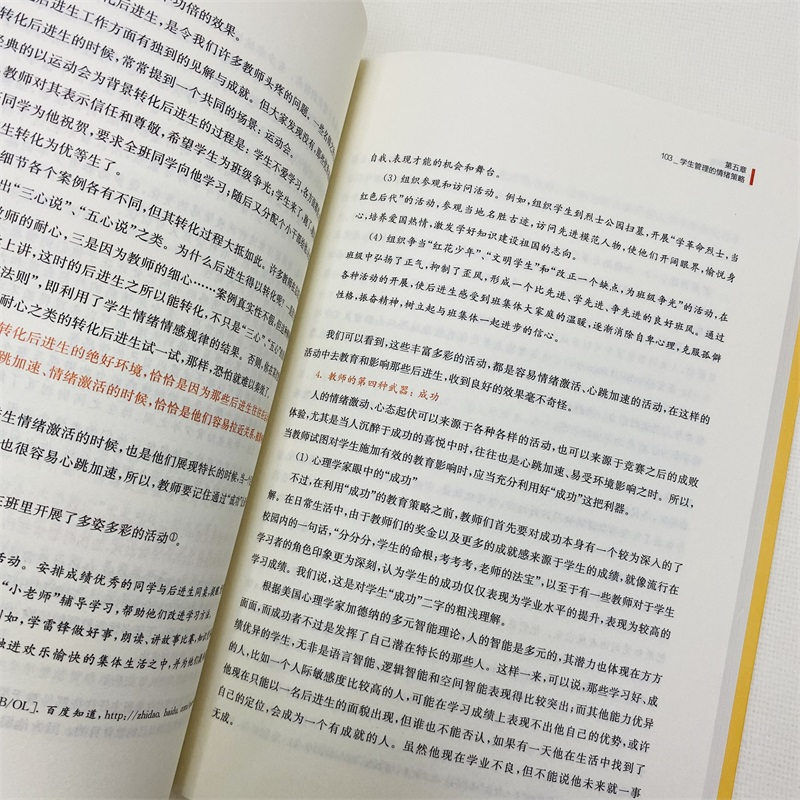 功倍的效果。
化后进生，是令我们许多教师头疼的问题。一些名师
转化后进生工作方面有独到的见解与成就。但大家发现没有，那些
进生的时候，常常提到一个共同的场景：运动会。
经典的以运动会为背景转化后进生的过程是：学生不爱学习，
教师对其表示信任和尊敬，希望学生为班级争光；学生来了，
同学为他祝贺，要求全班同学向他学习；随后又分配个小干部
生转化为优等生了。
细节各个案例各有不同，但其转化过程大抵如此。许多教师
出“三心说”、“五心说”之类。为什么后进生得以转化呢？
师的耐心，三是因为教师的细心……案例真实性不假，但
上讲，这时的后进生之所以能转化，不只是“三心”“五心”
法则”，即利用了学生情绪情感规律的结果。否则，
耐心之类的转化后进生试一试，那样，恐怕就难以奏效了。
转化后进生的绝好环境，恰恰是因为那些后进生
跳加速、情绪激活的时候，恰恰是他们容易拉近关系、
生情绪激活的时候，也是他们展现特长的时候。
也很容易心跳加速，所以，教师要记住通过“成功”
班里开展了多姿多彩的活动①。
活动。安排成绩优秀的同学与后进生同桌，
“小老师”辅导学习，帮助他们改进学习方法，
如，学雷锋做好事，朗读、讲故事比赛，
独进欢乐愉快的集体生活之中，并为他们
B/OL]. 百度知道，http://zhidao. baidu. com
第五章
103_学生管理的情绪策略
自我、表现才能的机会和舞台。
（3）组织参观和访问活动。例如，组织学生到烈士公园扫墓，开展“学革命烈士，当
红色后代”的活动，参观当地名胜古迹，访问先进模范人物，使他们开阔眼界，愉悦身
心，培养爱国热情，激发学好知识建设祖国的志向。
（4）组织争当“红花少年”、“文明学生”和“改正一个缺点，为班级争光”的活动，在
班级中弘扬了正气，抑制了歪风，形成一个比先进、学先进、争先进的良好班风。通过
各种活动的开展，使后进生感受到班集体大家庭的温暖，逐渐消除自卑心理，克服孤僻
性格，振奋精神，树立起与班集体一起进步的信心。
我们可以看到，这些丰富多彩的活动，都是容易情绪激活、心跳加速的活动，在这样的
活动中去教育和影响那些后进生，收到良好的效果毫不奇怪。
4. 教师的第四种武器：成功
人的情绪激动、心态起伏可以来源于各种各样的活动，也可以来源于竞赛之后的成败
体验，尤其是当人沉醉于成功的喜悦中时，往往也是心跳加速、易受环境影响之时。所以，
当教师试图对学生施加有效的教育影响时，应当充分利用好“成功”这把利器。
（1）心理学家眼中的“成功”
不过，在利用“成功”的教育策略之前，教师们首先要对成功本身有一个较为深入的了
解。在日常生活中，由于教师们的奖金以及更多的成就感来源于学生的成绩，就像流行在
校园内的一句话，“分分分，学生的命根；考考考，老师的法宝”，以至于有一些教师对于学生
学习者的角色印象更为深刻，认为学生的成功仅仅表现为学业水平的提升，表现为较高的
学习成绩。我们说，这是对学生“成功”二字的粗浅理解。
根据美国心理学家加德纳的多元智能理论，人的智能是多元的，其潜力也体现在方方
面面，而成功者不过是发挥了自己潜在特长的那些人。这样一来，可以说，那些学习好、成
绩优异的学生，无非是语言智能、逻辑智能和空间智能表现得比较突出；而其他能力优异
的人，比如一个人际敏感度比较高的人，可能在学习成绩上表现不出他自己的优势，或许
他现在只能以一名后进生的面貌出现，但谁也不能否认，如果有一天他在生活中找到了
自己的定位，会成为一个有成就的人。虽然他现在学业不良，但不能说他未来就一事
无成。